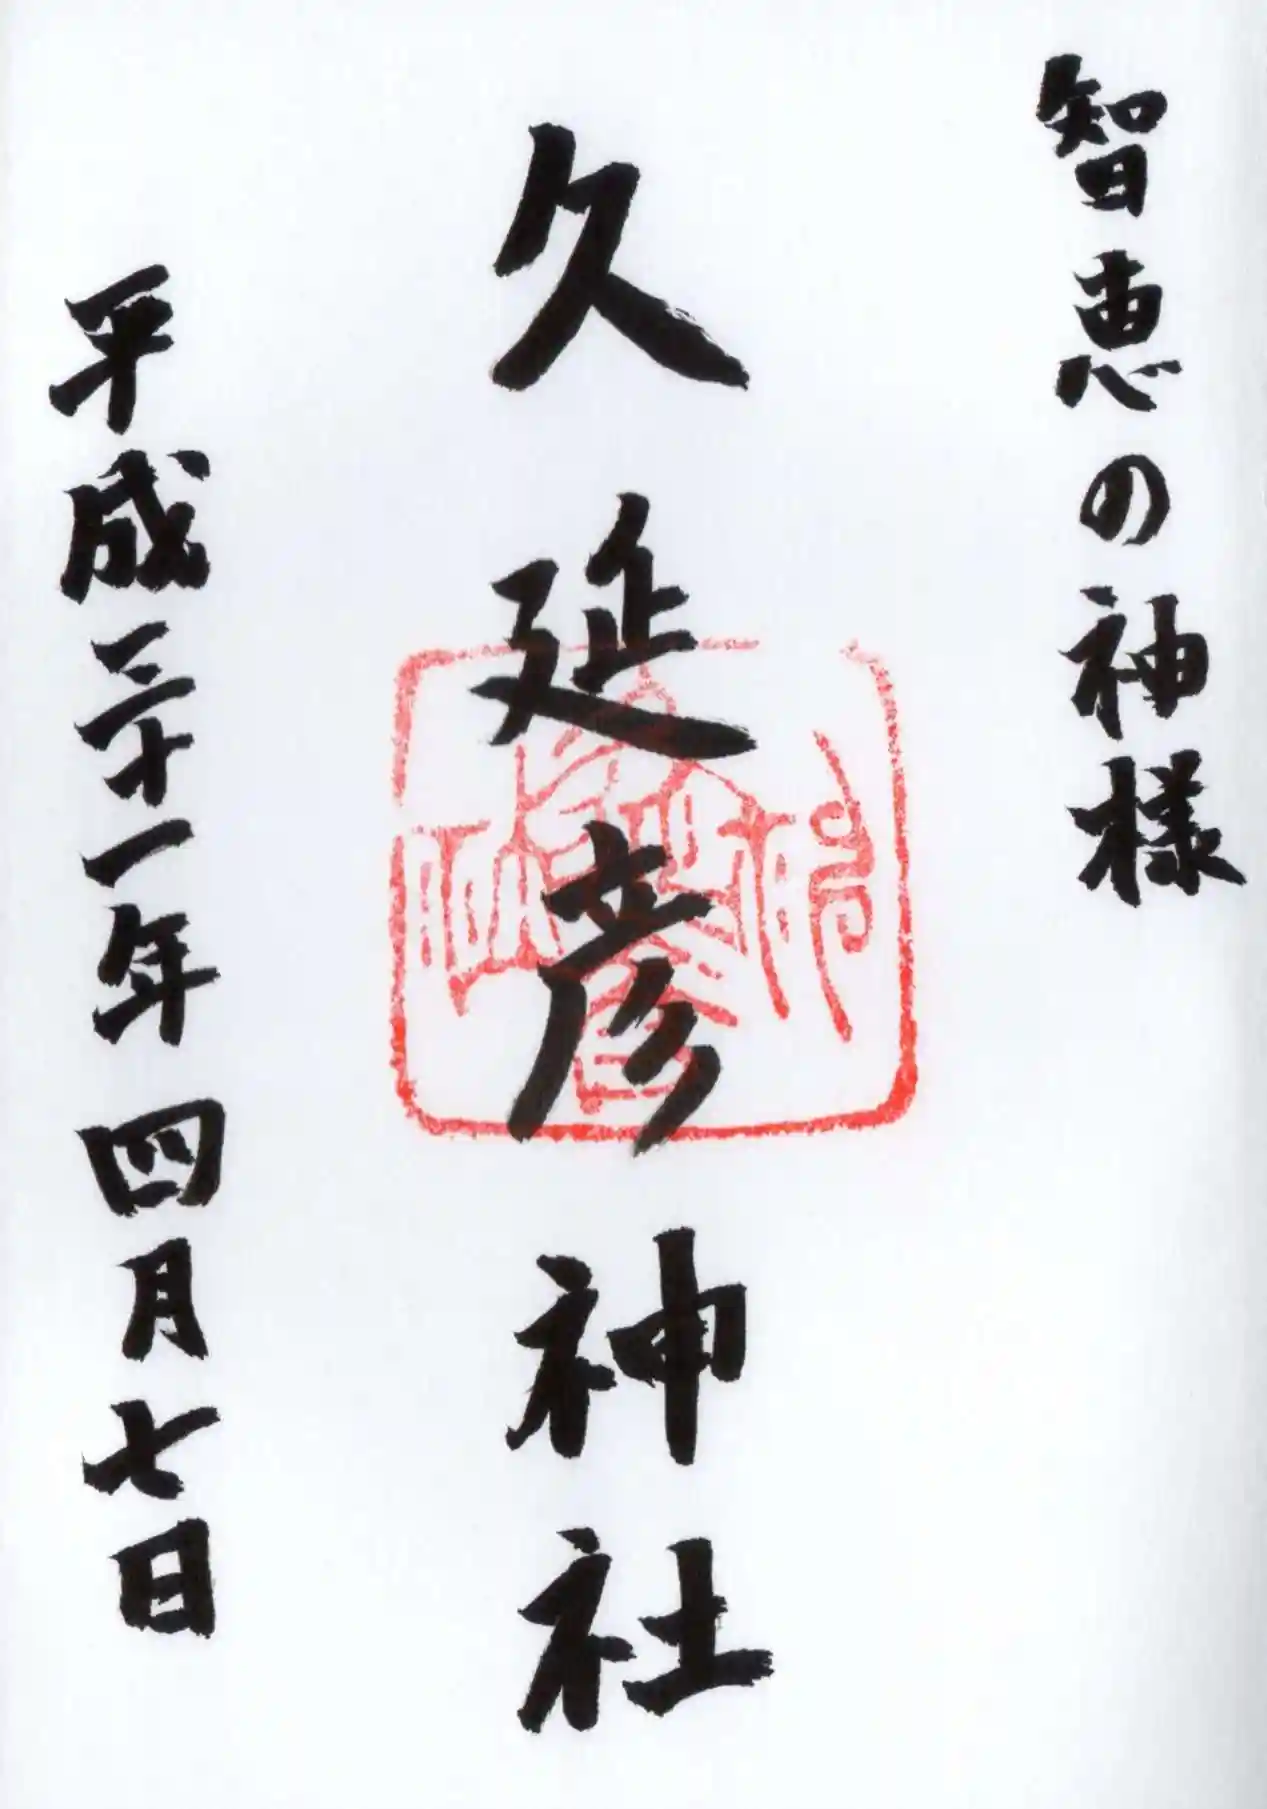 智恵の神様
久延彦神社
平成三十一年四月七日